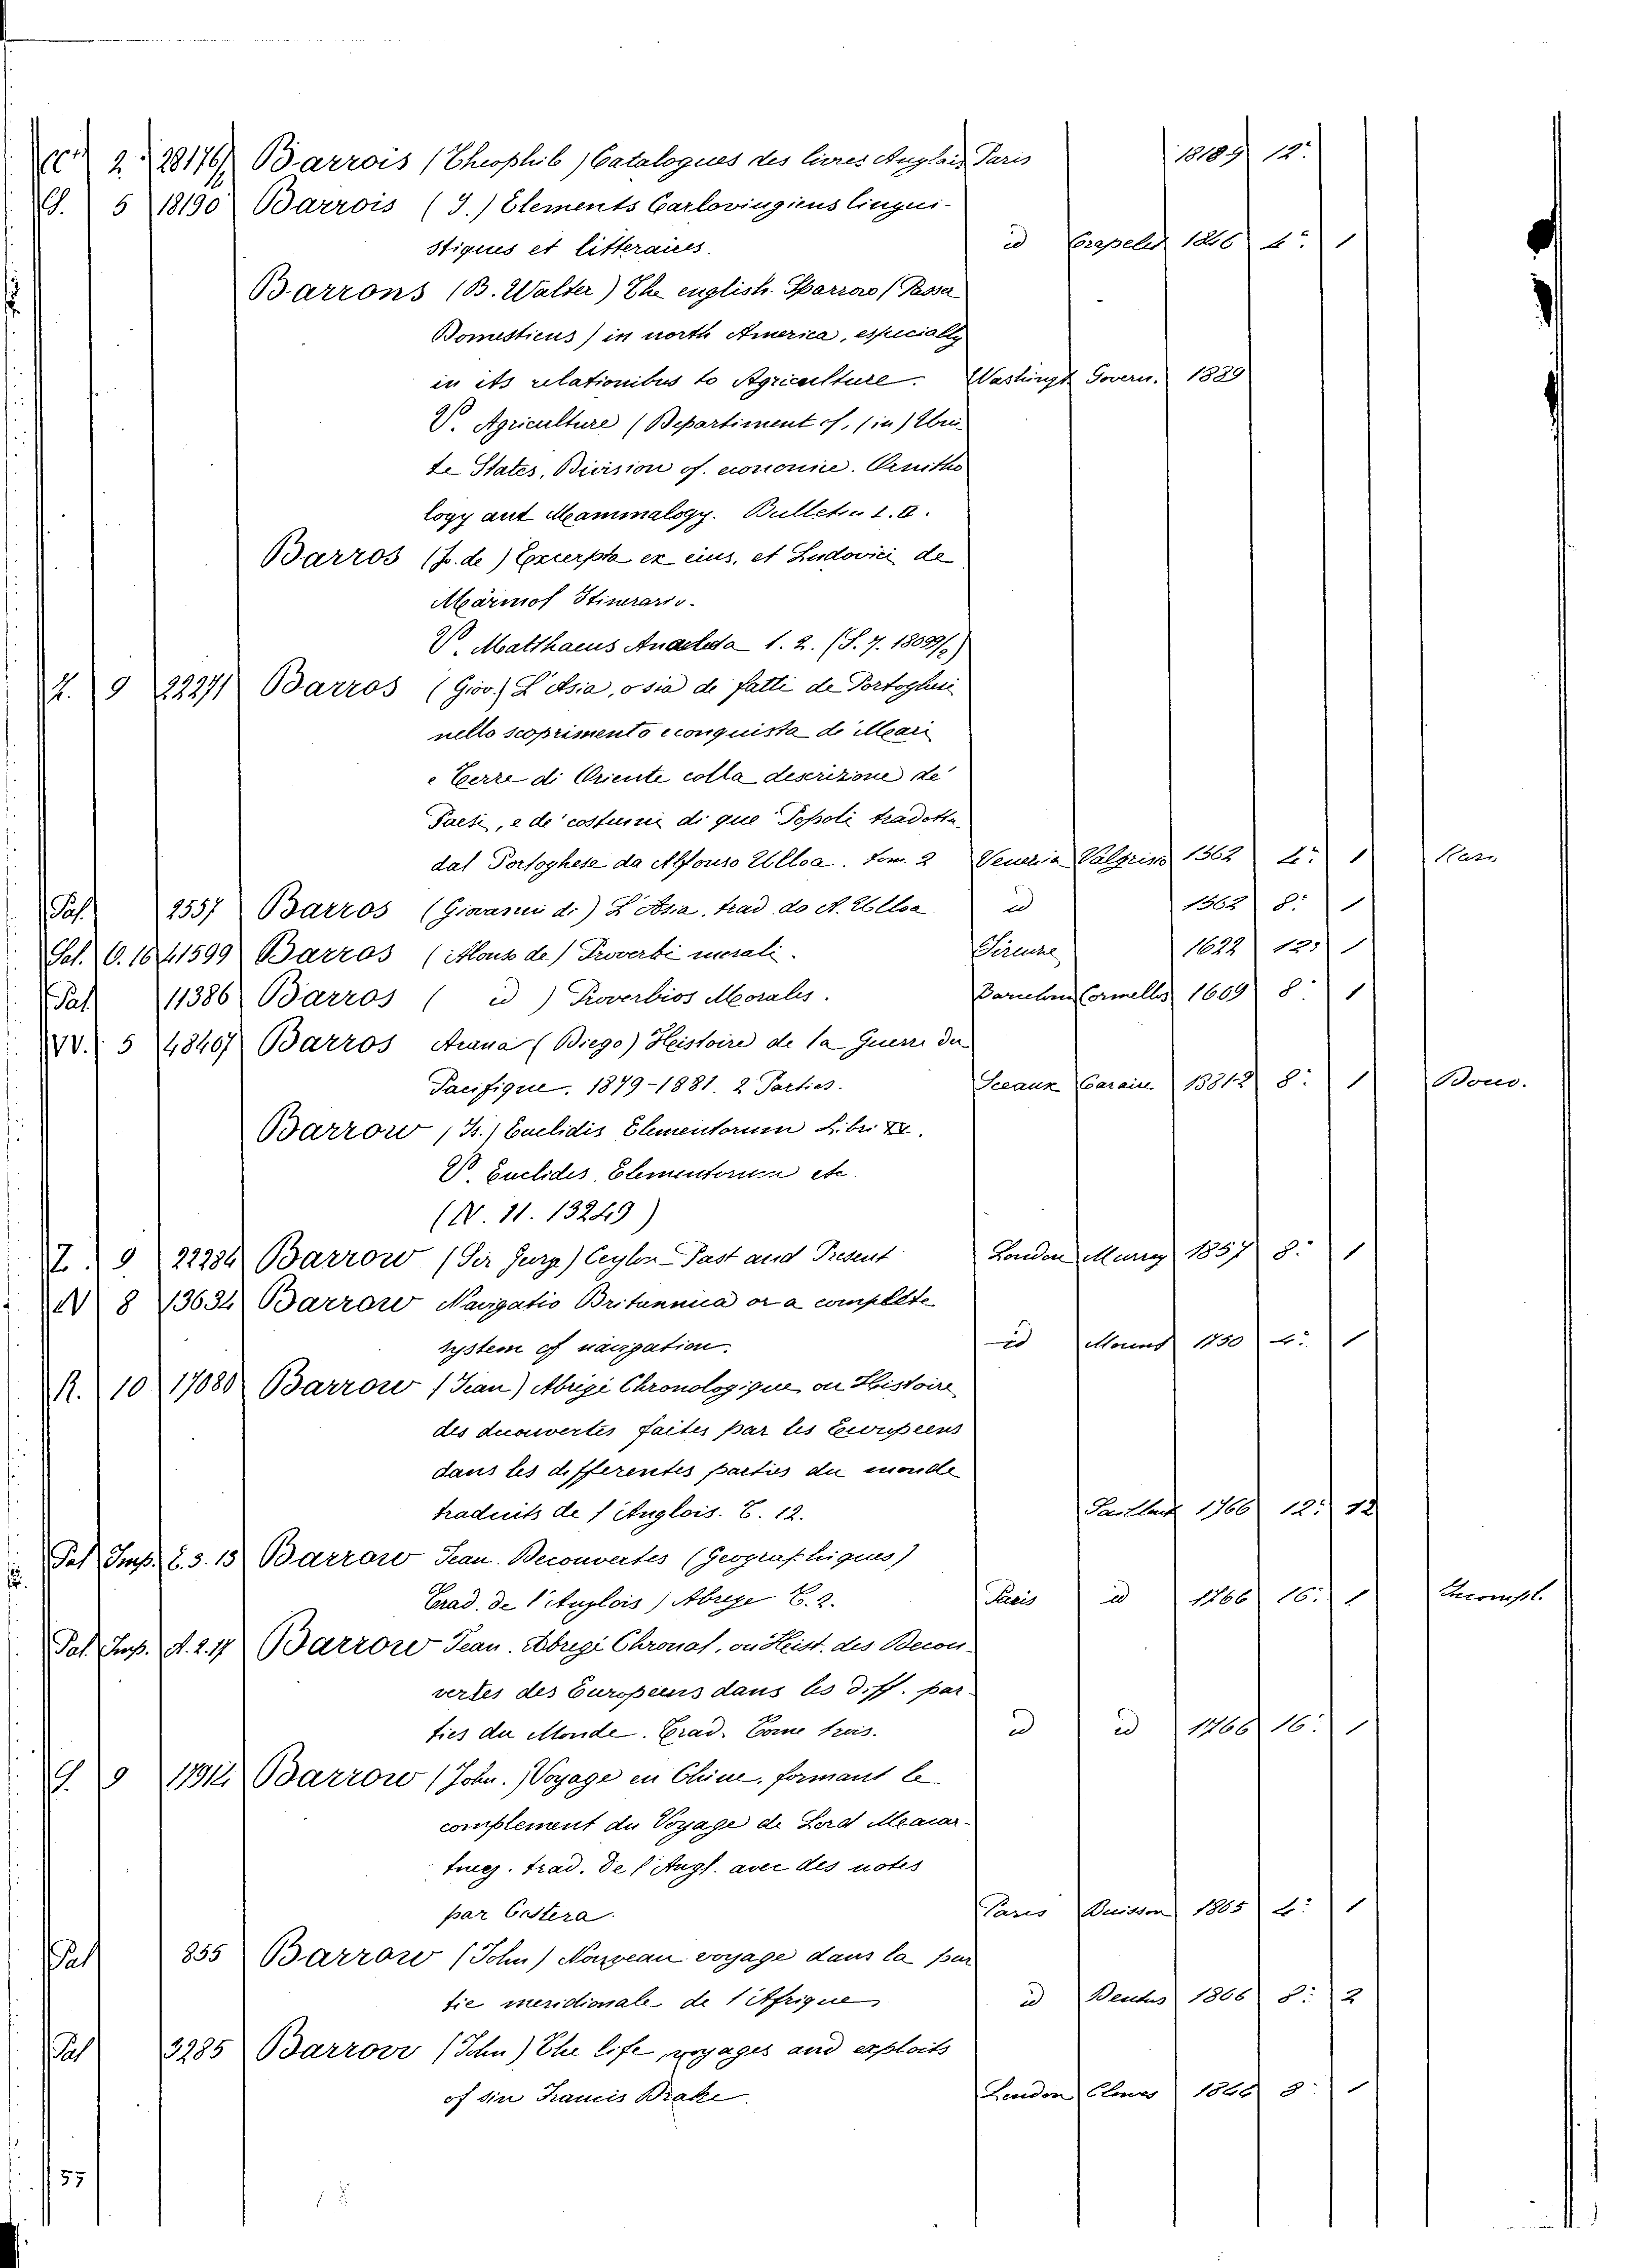 2. 28176 Barrois (Theophib) Catalogues des livres Anglais Paris 12º
G. 5 18190 Barrois (J.) Elements Carlovingiens lingui-
stiques et litteraires. id Crapelet 4º 1
Barrons (B. Walter) The english Sparrow (Passer
Domesticus) in north America, especially
in its relationibus to Agriculture. Washingt Govern. 1889
V. Agriculture (Departiment of, (in) Uni-
te States, Division of. economie. Ornitho
logy ant Mammalogy. Bulletin 1.
Barros (J. de) Excerpta ex eius, et Ludovici de
Mármol Itinerario.
V. Matthaeus Analeda 1. 2. (S. 7. 18099/2)
Z. 9 22271 Barros (Giov.) L'Asia, o sia de fatti de Portoghesi
nello scoprimento e conquista de Mari
e Terre di Oriente colla descrizione de'
Paesi, e de' costumi di que' Popoli tradotta
dal Portoghese da Alfonso Ulloa. tom. 2 Venezia Valgriso 1562 4º 1 Raro
Pal. 2557 Barros (Giovanni di) L'Asia, trad. do A. Ulloa id 1562 8º 1
Pal. C. 16 41599 Barros (Alonso de) Proverbi morali. Firenze 1622 12º 1
Pal 11386 Barros ( id ) Proverbios Morales. Barcelona Cormellas 1609 8º 1
VV. 5 48407 Barros Arana (Diego) Heistoire de la Guerre du
Pacifique. 1879-1881. 2 Parties. Sceaux Caraire 1881-2 8º 1 Dono.
Barrow (Is.) Euclidis Elementorum Libri XV.
V. Euclides, Elementorum etc
(N. 11. 13249)
Z. 9 22284 Barrow (Sir Jurg) Ceylon-Past and Present London Murrey 1857 8º 1
N 8 13634 Barrow Navigatio Britannica or a complete
system of navigation. id Mount 1750 4º 1
R. 10 17080 Barrow (Jean) Abrigé Chronologique ou Histoire
des decouvertes faites par les Europeens
dans les differentes parties du monde
traduits de l'Anglois. T. 12. 1766 12º 12
Pal Imp. C. 3. 13 Barrow Jean. Decouvertes (Geographiques)
Trad. de l'Anglois) Abrege T. 2. Paris id 1766 16º 1 Incompl.
Pal. Imp. A. 2. 17 Barrow Jean. Abregé Chronol, ou Heist. des Decou-
vertes des Europeens dans les diff. par-
ties du Monde. Trad. Tome trois. id id 1766 16º 1
G. 9 17914 Barrow (John.) Voyage en Chine, formant le
complement du Voyage de Lord Macar-
tney. trad. de l'Angl. avec des notes
par Castera. Paris Buisson 1805 4º 1
Pal 855 Barrow (John) Nouveau voyage dans la par
tie meridionale de l'Afrique id Dentus 1806 8º 2
Pal 3285 Barrow (John) The life, voyages and exploits
of sin Francis Drake. London Clowes 8º 1
55